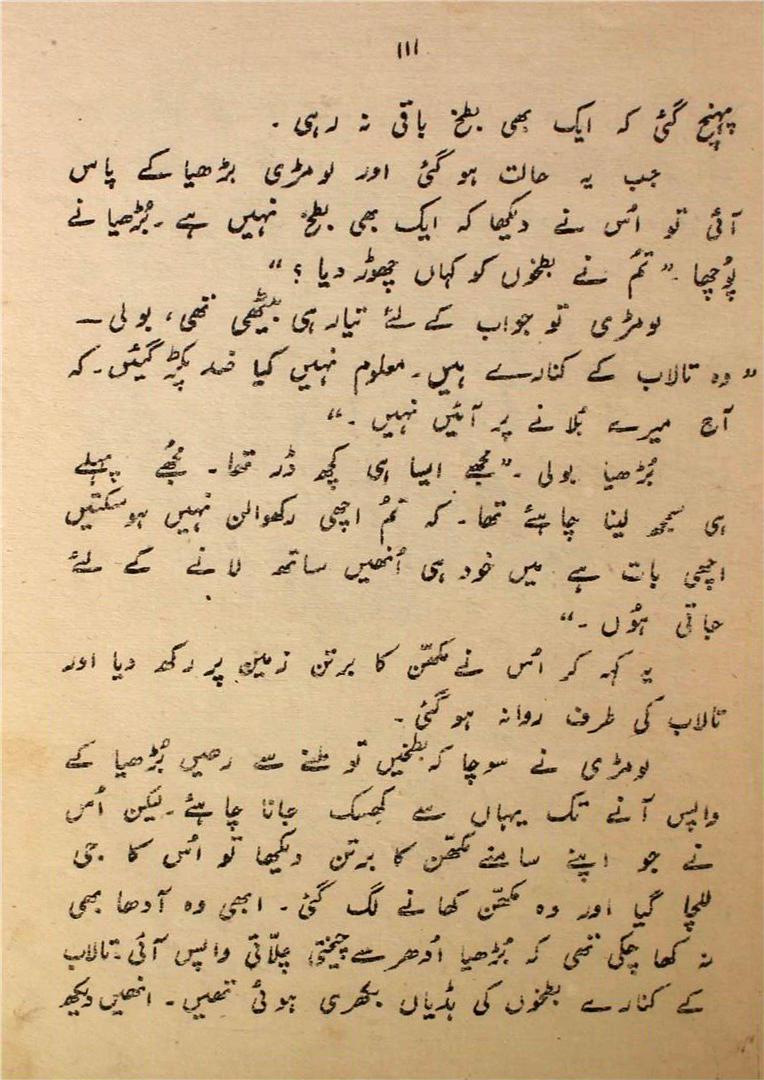 ۱۱۱
پہنچ گئی کہ ایک بھی بطخ باقی نہ رہی ۔
جب یہ حالت ہو گئی اور لومڑی بڑھیا کے پاس
آئی تو اُس نے دیکھا کہ ایک بھی بطخ نہیں ہے ۔ بُڑھیا نے
پُوچھا ۔ ” تُم نے بطخوں کو کہاں چھوڑ دیا ؟ “
لومڑی تو جواب کے لئے تیار ہی بیٹھی تھی ، بولی —
” وہ تالاب کے کنارے ہیں ۔ معلوم نہیں کیا ضد پکڑ گئیں ۔ کہ
آج میرے بُلانے پر آئیں نہیں ۔ “
بُڑھیا بولی ۔ ” مجھے ایسا ہی کچھ ڈر تھا ۔ مجُھے پہلے
ہی سمجھ لینا چاہئے تھا ۔ کہ تُم اچھی رکھوالن نہیں ہو سکتیں
اچھی بات ہے میں خود ہی اُنھیں ساتھ لانے کے لئے
جاتی ہُوں ۔ “
یہ کہہ کر اُس نے مکھّن کا برتن زمین پر رکھ دیا اور
تالاب کی طرف روانہ ہو گئی ۔
لومڑی نے سوچا کہ بطخیں تو ملنے سے رھیں بُڑھیا کے
واپس آنے تک یہاں سے کھسک جانا چاہئے ۔ لیکن اُس
نے جو اپنے سامنے مکھّن کا برتن دیکھا تو اُس کا جی
للچا گیا اور وہ مکھّن کھانے لگ گئی ۔ ابھی وہ آدھا بھی
نہ کھا چکی تھی کہ بُڑھیا اُدھر سے چیختی چلّاتی واپس آئی ۔ تالاب
کے کنارے بطخوں کی ہڈیاں بکھری ہوئی تھیں ۔ انھیں دیکھ